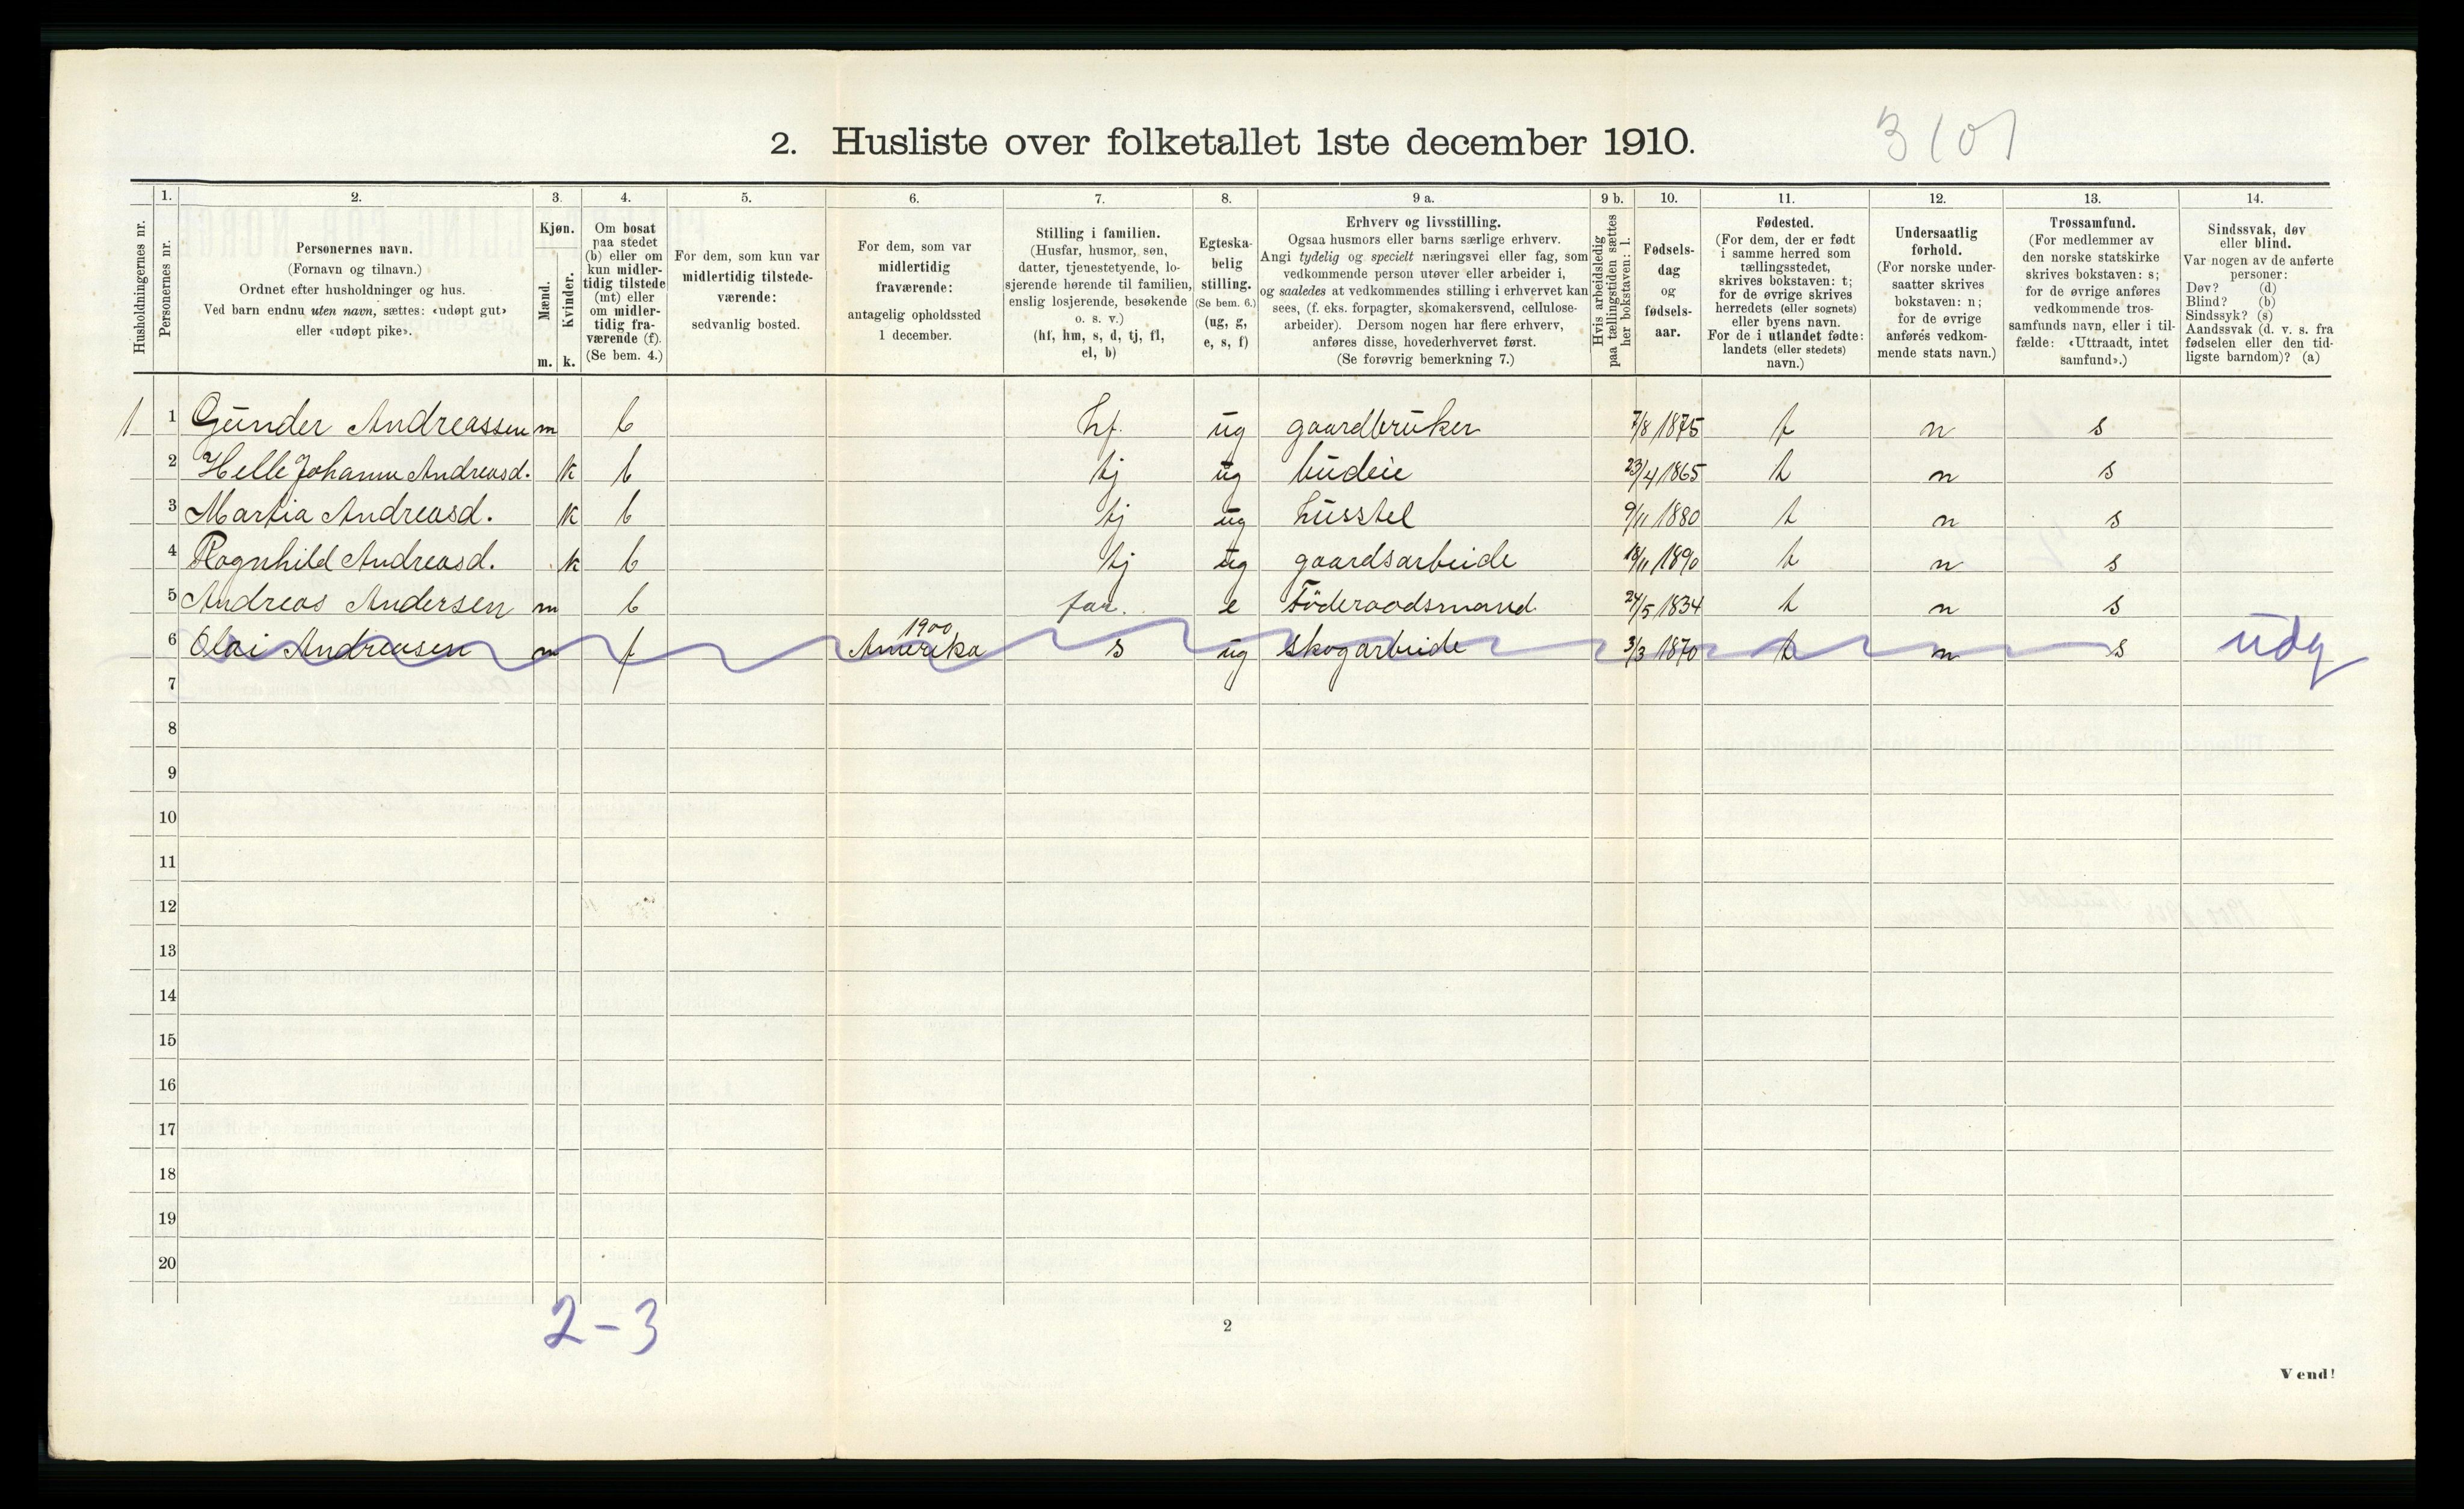 2. Husliste over folketallet 1ste december 1910.
3101
Husholdningernes nr.
1.
Personernes nr.
2.
Personernes navn.
(Fornavn og tilnavn.)
Ordnet efter husholdninger og hus.
Ved barn endnu uten navn, sættes: «udøpt gut»
eller «udøpt pike».
3.
Kjøn.
Mænd.
m.
Kvinder.
k.
4.
Om bosat
paa stedet
(b) eller om
kun midler-
tidig tilstede
(mt) eller
om midler-
tidig fra-
værende (f).
(Se bem. 4.)
5.
For dem, som kun var
midlertidig tilstede-
værende:
sedvanlig bosted.
6.
For dem, som var
midlertidig
fraværende:
antagelig opholdssted
1 december.
7.
Stilling i familien.
(Husfar, husmor, søn,
datter, tjenestetyende, lo-
sjerende hørende til familien,
enslig losjerende, besøkende
o. s. v.)
(hf, hm, s, d, tj, fl,
el, b)
8.
Egteska-
belig
stilling.
(Se bem. 6.)
(ug, g,
e, s, f)
9 a.
Erhverv og livsstilling.
Ogsaa husmors eller barns særlige erhverv.
Angi tydelig og specielt næringsvei eller fag, som
vedkommende person utøver eller arbeider i,
og saaledes at vedkommendes stilling i erhvervet kan
sees, (f. eks. forpagter, skomakersvend, cellulose-
arbeider). Dersom nogen har flere erhverv,
anføres disse, hovederhvervet først.
(Se forøvrig bemerkning 7.)
9 b.
Hvis arbeidsledig
paa tællingstiden sættes
her bokstaven: l.
10.
Fødsels-
dag
og
fødsels-
aar.
11.
Fødested.
(For dem, der er født
i samme herred som
tællingsstedet,
skrives bokstaven: t;
for de øvrige skrives
herredets (eller sognets)
eller byens navn.
For de i utlandet fødte:
landets (eller stedets)
navn.)
12.
Undersaatlig
forhold.
(For norske under-
saatter skrives
bokstaven: n;
for de øvrige
anføres vedkom-
mende stats navn.)
13.
Trossamfund.
(For medlemmer av
den norske statskirke
skrives bokstaven: s;
for de øvrige anføres
vedkommende tros-
samfunds navn, eller i til-
fælde: «Uttraadt, intet
samfund».)
14.
Sindssvak, døv
eller blind.
Var nogen av de anførte
personer:
Døv? (d)
Blind? (b)
Sindssyk? (s)
Aandssvak (d. v. s. fra
fødselen eller den tid-
ligste barndom)? (a)
1 1 Gunder Andreassen m b hf. ug gaardbruker 7/8 1875 t n s
2 Helle Johanne Andreasd. k b tj ug budeie 23/4 1865 t n s
3 Martia Andreasd. k b tj ug husstel 9/11 1880 t n s
4 Ragnhild Andreasd. k b tj ug gaardsarbeide 18/11 1890 t n s
5 Andreas Andersen m b far. e Föderaadsmand 24/5 1834 t n s
1900
6 Olai Andreasen m f Amerika s ug skogarbeide 3/3 1870 t n s udg
7
8
9
10
11
12
13
14
15
16
17
18
19
20
2-3
2
Vend!